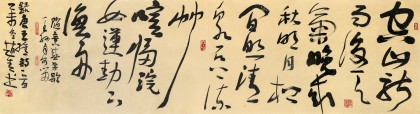 空山新
雨後天
氣晚來
秋明月松
間照清
泉石上流
竹
喧歸浣
女蓮動下
漁舟
隨意春芳歇
王孫自可留